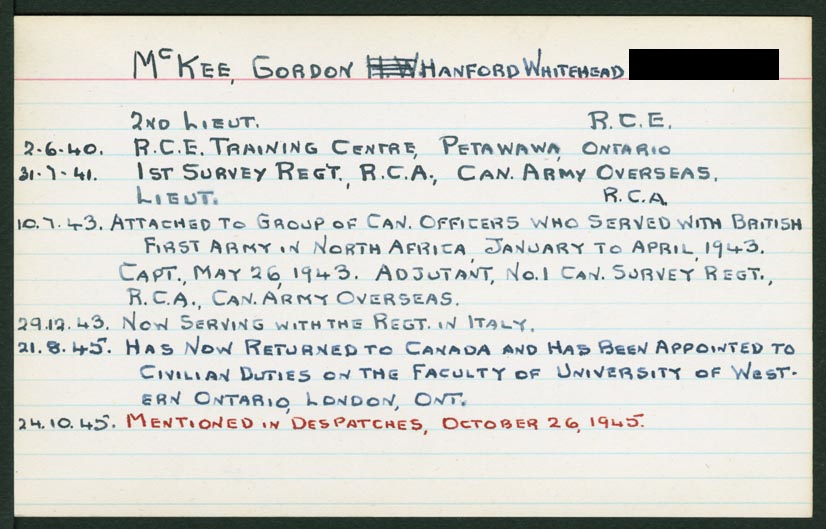 McKEE, GORDON HANFORD WHITEHEAD
2ND LIEUT. R.C.E.
2-6-40. R.C.E. TRAINING CENTRE, PETAWAWA, ONTARIO
31-7-41. 1ST SURVEY REGT., R.C.A., CAN. ARMY OVERSEAS.
LIEUT. R.C.A.
10.7.43. ATTACHED TO GROUP OF CAN. OFFICERS WHO SERVED WITH BRITISH
FIRST ARMY IN NORTH AFRICA, JANUARY TO APRIL, 1943.
CAPT., MAY 26, 1943. ADJUTANT, NO.1 CAN. SURVEY REGT.,
R.C.A., CAN. ARMY OVERSEAS.
29.12.43. NOW SERVING WITH THE REGT. IN ITALY.
21.8.45. HAS NOW RETURNED TO CANADA AND HAS BEEN APPOINTED TO
CIVILIAN DUTIES ON THE FACULTY OF UNIVERSITY OF WEST-
ERN ONTARIO, LONDON, ONT.
24.10.45. MENTIONED IN DESPATCHES, OCTOBER 26, 1945.